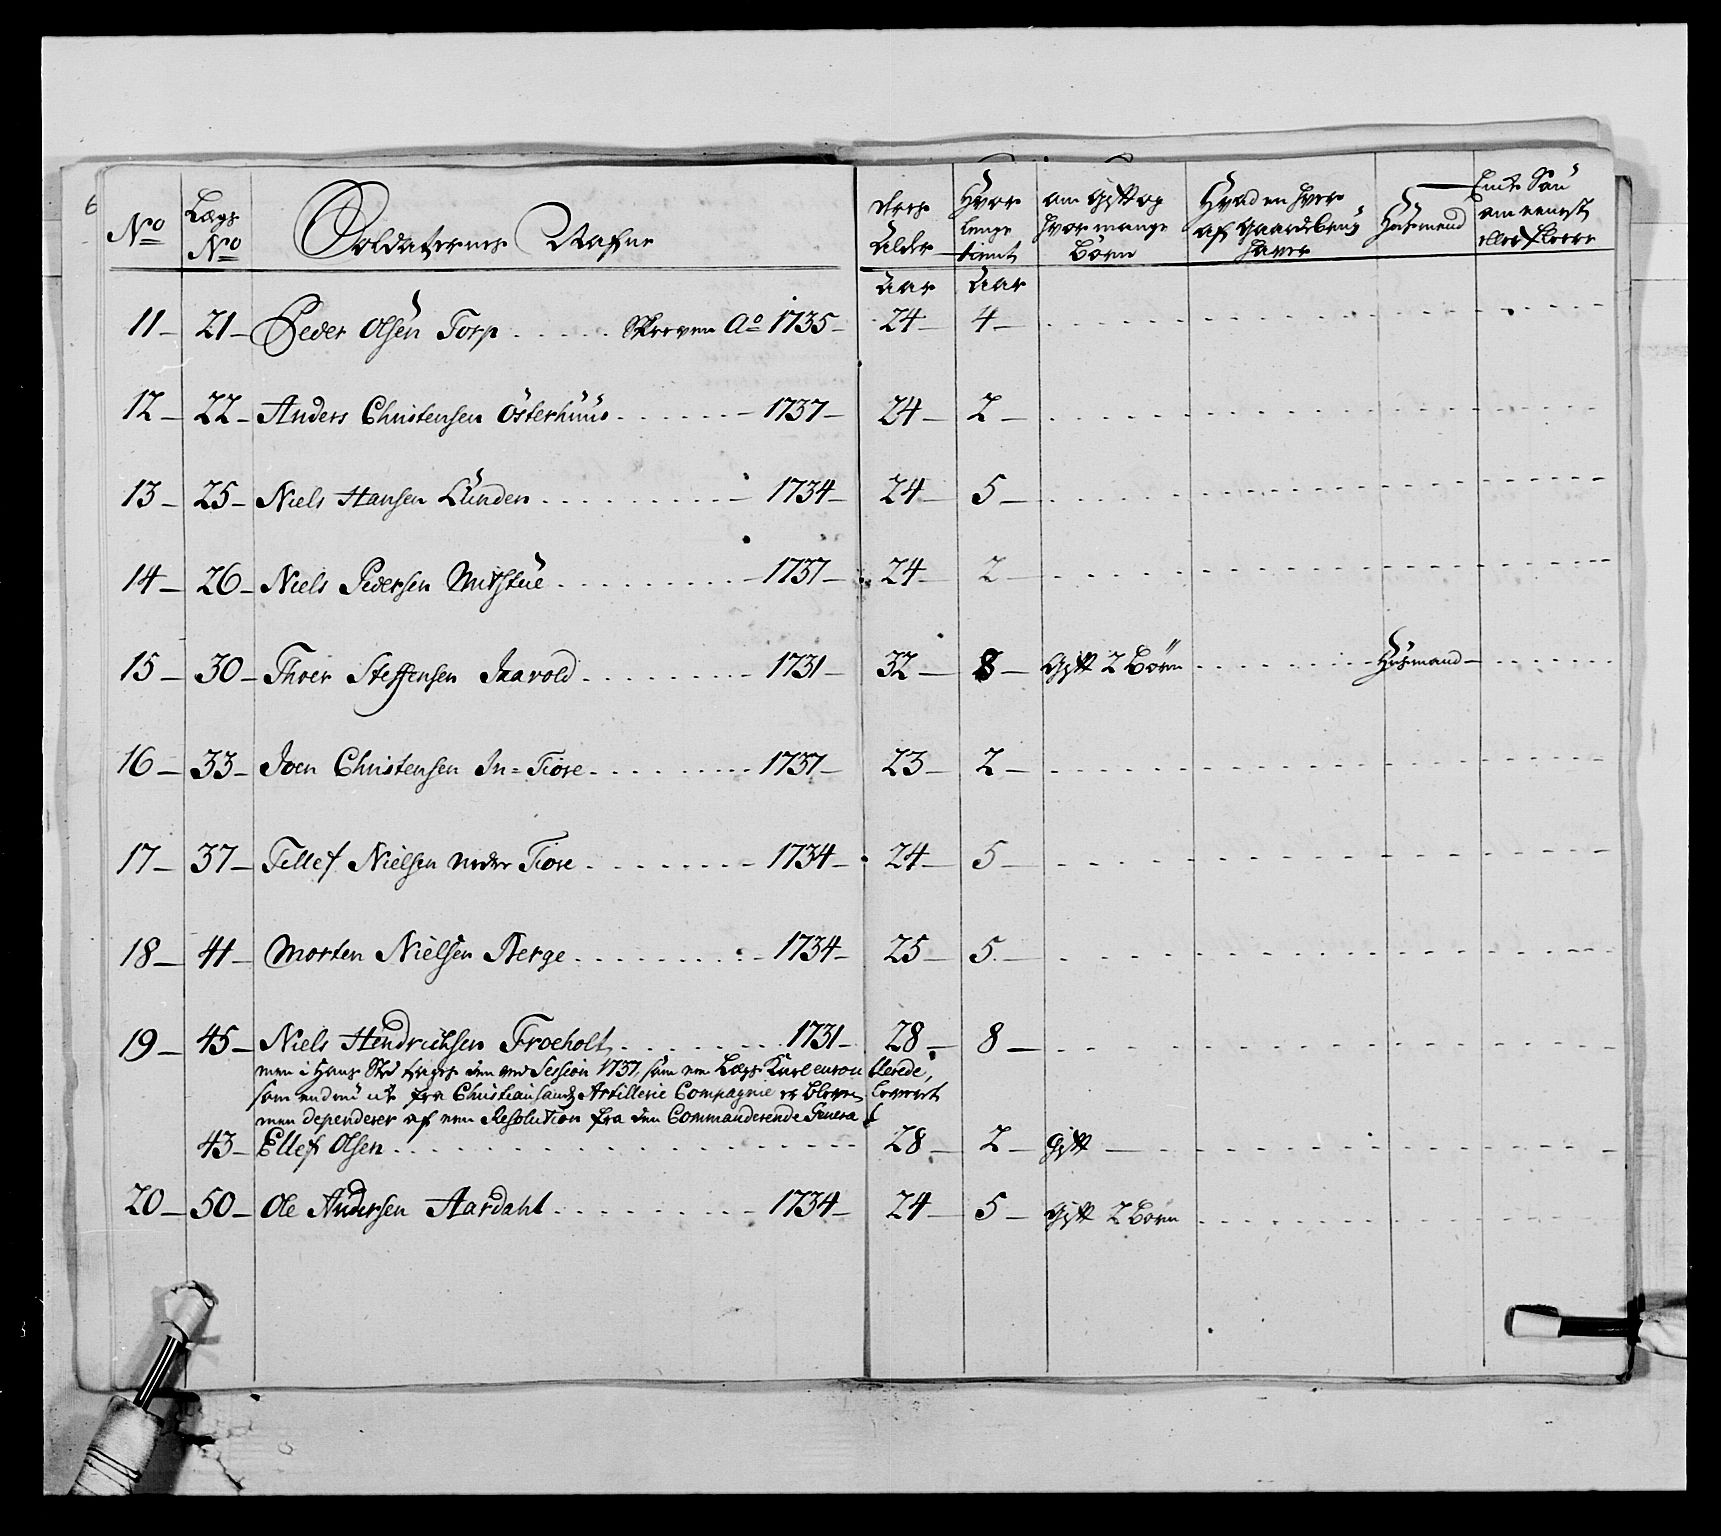 6
No Lægs No Soldaternes Nafne deris Alder Hvor lenge tient om gift og hvor mange Börn Hvad en hver af Gaardebrug haver Huusmend
Aar Aar
11 21 Peder Olsen Torp Skreven Ao 1735 24 4
12 22 Anders Christensen Österhuus 1737 24 2
13 25 Niels Hansen Lunden 1734 24 5
14 26 Niels Pedersen Mitstue 1737 24 2
15 30 Thoer Steffensen Jaavold 1731 32 8 gift 2 Börn Husmand
16 33 Joen Christensen In=Tiore 1737 23 2
17 37 Tellef Nielsen neder Tiore 1734 24 5
18 41 Morten Nielsen Berge 1734 25 5
19 45 Niels Hendrichsen Froeholt 1731 28 8
men i Hans Sted tages den ved Session 1737, som en Lægs Karl enroullerede,
som endnu ei fra Christiansands Artillerie Compagnie er bleven leveret
men dependerer af en Resolution fra den Commanderende General
43 Ellef Olsen 28 2 gift
20 50 Ole Andersen Aardahl 1734 24 5 gift 2 Börn